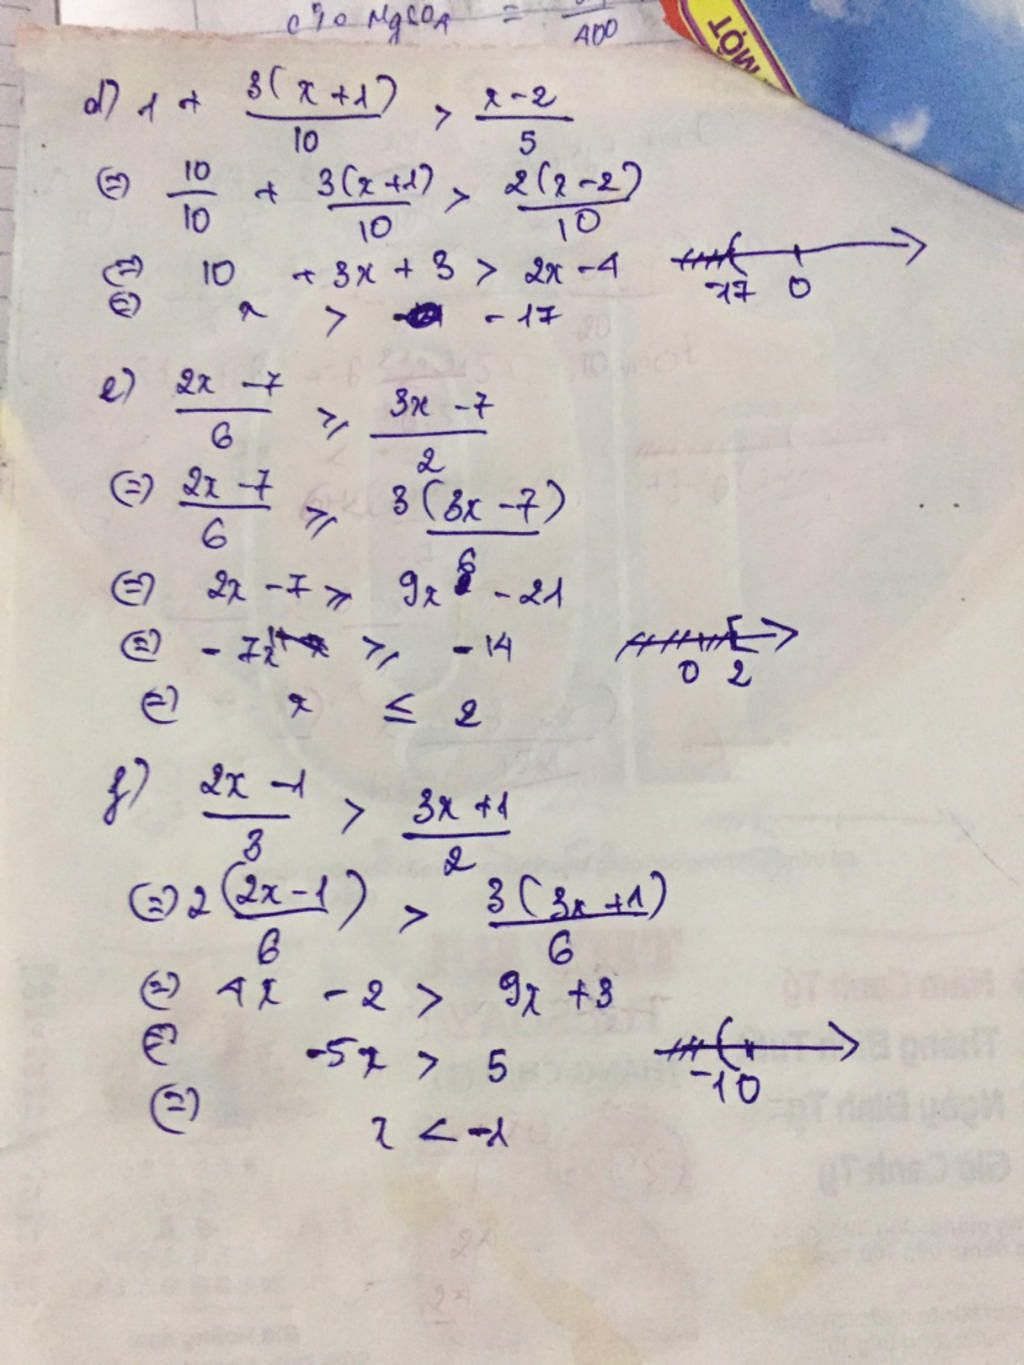 C% MgSO4 =
100
MỘT
d) 1 + 3(x+1)/10 > x-2/5
(=) 10/10 + 3(x+1)/10 > 2(x-2)/10
(=) 10 + 3x + 3 > 2x - 4
-17 0
(=) x > -17
e) 2x - 7/6 ≥ 3x - 7/2
(=) 2x - 7/6 ≥ 3(3x - 7)/6
(=) 2x - 7 ≥ 9x - 21
(=) -7x ≥ -14
0 2
(=) x ≤ 2
f) 2x - 1/3 > 3x + 1/2
(=) 2(2x - 1)/6 > 3(3x + 1)/6
(=) 4x - 2 > 9x + 3
(=) -5x > 5
-1 0
(=) x < -1